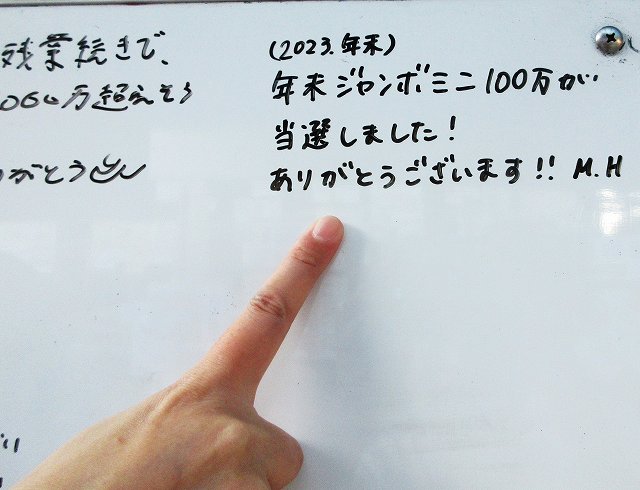 残業続きで、
060万超えそう
がとう
(2023.年末)
年末ジャンボミニ100万が
当選しました!
ありがとうございます!! M.H